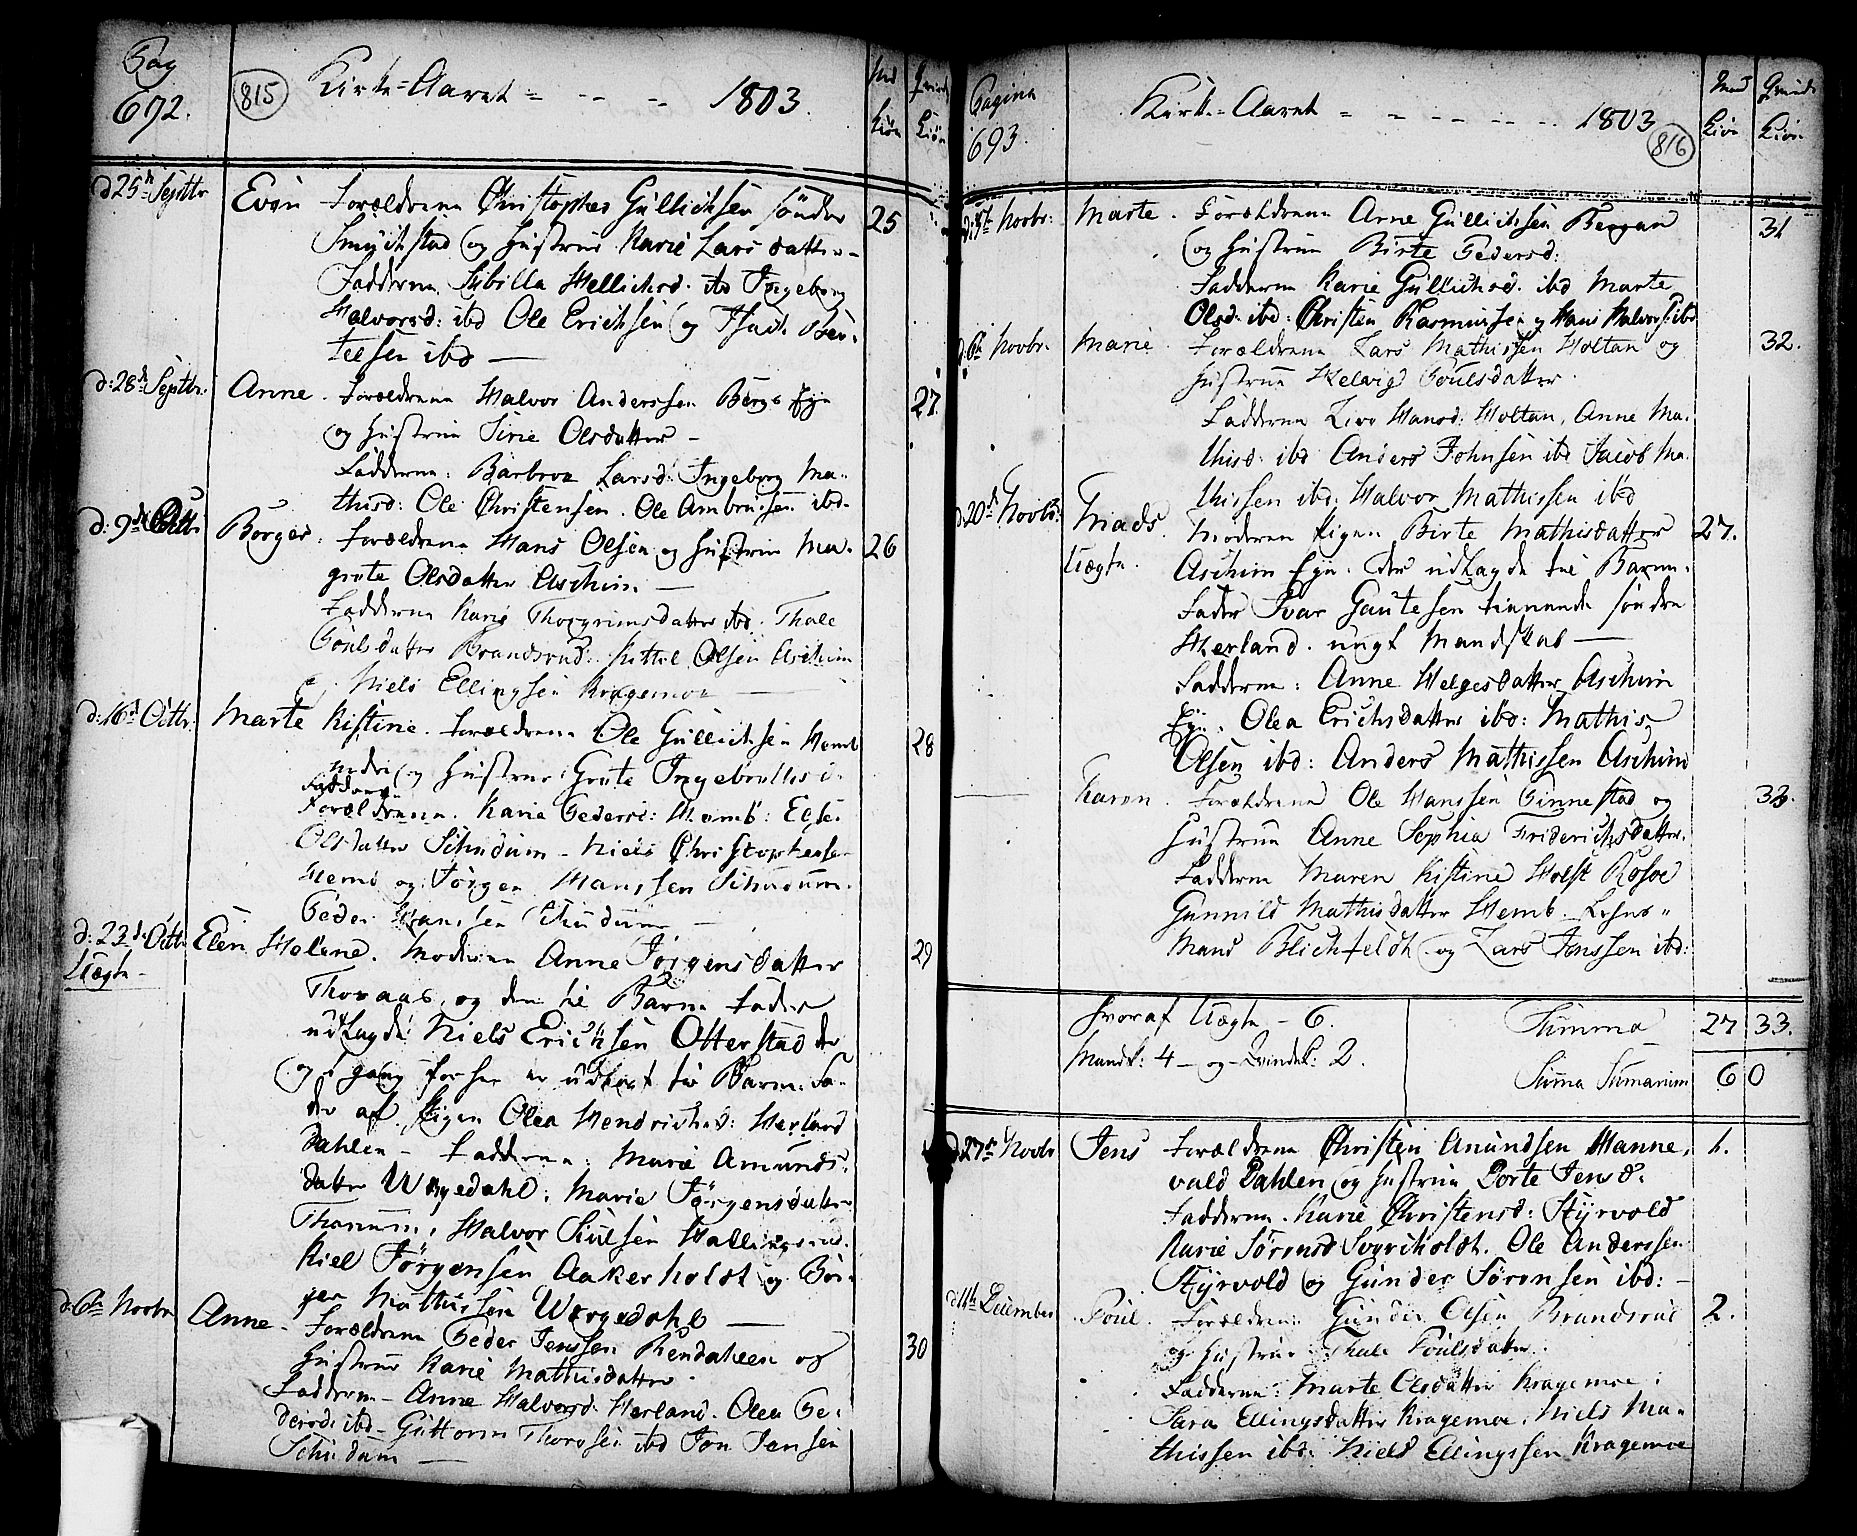 Pag
692.
815
Kirke-Aaret = - - - 1803.
Mand
Kiøn
Qvinde
Kiøn
d 25de Septbr Even Forældrene Christopher Gullichsen søndre 25
Smuchstad og Hustrue Karie Lars datter -
Fadderne Sibilla Mellichsd. ibd Ingeborg
Halvorsd: ibd Ole Erichsen og Isach Ben-
telsen ibd —
d: 28de Septbr. Anne. Forældrene Halvor Anderssen Bergs Eye 27.
og Hustrue Sirie Olsdatter -
Fadderne: Barbroe Larsd: Ingeborg Ma-
thisd: Ole Christensen. Ole Ambrusen ibd.
d: 9de Octbr Børger. Forældrene Hans Olsen og Hustrue Ma- 26
grete Olsdatter Aschim —
Fadderne Karie Thorgrimsdatter ibd. Thale
Poulsdatter Brandsrud. Kittel Olsen Aschim
og Niels Ellingsen Kragemoe —
d: 16de Octbr. Marte Kistine. Forældrene Ole Gullichsen Hemb 28
nedre og Hustrue Grete Ingebretsd
Fadderne
Forældrene. Karie Pedersd: Hemb: Else
Olsdatter Schudum - Niels Christophersen
Hemb og Jørgen Hanssen Schudum.
Peder Hanssen Schudum —
d: 23de Octbr Elen Helene. Moderen Anne Jørgensdatter 29
Uægte -
Thoraas, og den til Barne Fader
udlagde Niels Erichsen Otterstad der
og 1 gang før her er udlagt til Barne Fa-
der af Pigen Olea Hendrichsd: Herland
dahlen - Fadderne: Marie Amunds-
datter Wegedahl: Marie Jørgensdatter
Thanum, Halvor Hallingsrud.
Kiel Jørgensen Aakerholdt og Bør-
ger Mathissen Wegedahl —
d: 6te Novbr Anne - Forældrene Peder Jenssen Rendahlen og 30
Hustrue Karie Mathisdatter.
Fadderne - Anne Halvorsd. Herland. Olea Pe-
dersd: ibd - Guttorm Thorsen ibd Jon Jensen
Schudum —
Pagina
693.
Kirke-Aaret = - - - - - 1803
816
Mand
Kiøn
Qvinde
Kiøn
d: 5te Novbr: Marte. Forældrene Arne Gullichsen Bergan 31
og Hustrue Birte Pedersd:
Fadderne Karie Gullichsd. ibd Marte
Olsd: ibd: Christen Rasmussen og Hans Halvors: ibd
d: 6te Novbr. Marie. Forældrene Lars Mathissen Holtan og 32.
Hustrue Helvig Poulsdatter.
Fadderne Live Hansd: Holtan, Anne Ma-
thisd: ibd Anders Johnsen ibd Jacob Ma-
thissen ibd: Halvor Mathissen ibd
d: 20de Novbr: Mads. Moderen Pigen Birte Mathisdatter 27.
Uægte.
Aschim Eye. Den udlagde til Barne-
Fader Ivar Gautesen tienende søndre
Herland. ungt Mandskab —
Fadderne: Anne Helgesdatter Aschim
Eye. Olea Erichsdatter ibd: Mathis
Olsen ibd: Anders Mathissen Aschim
Karen. Forældrene Ole Hanssen Finnestad og 33.
Hustrue Anne Sophia Friderichsdatter.
Fadderne Maren Kistine Holst Rosoe
Gunnild Mathisdatter Hemb. Lehns-
Mand Blichfeldt og Lars Jenssen ibd:
Hvoraf Uægte - 6. Summa 27 33.
Mandk: 4 - og Qvindek: 2. Suma Sumarum 60
d: 27de Novbr Jens Forældrene Christen Anundsen Hanne- 1.
vold Dahlen og Hustrue Dorte Jensd:
Fadderne. Karie Christensd: Styrvold
Karie Sørensd Svartholdt. Ole Anderssen
Styrvold og Gunder Sørensen ibd: -
d: 11te December Poul. Forældrene Gunder Olsen Brandsrud 2.
og Hustrue Thale Poulsdatter.
Fadderne: Marte Olsdatter Kragemoe:
Sara Ellingsdatter Kragemoe. Niels Ma-
thissen ibd: Niels Ellingssen Kragemoe